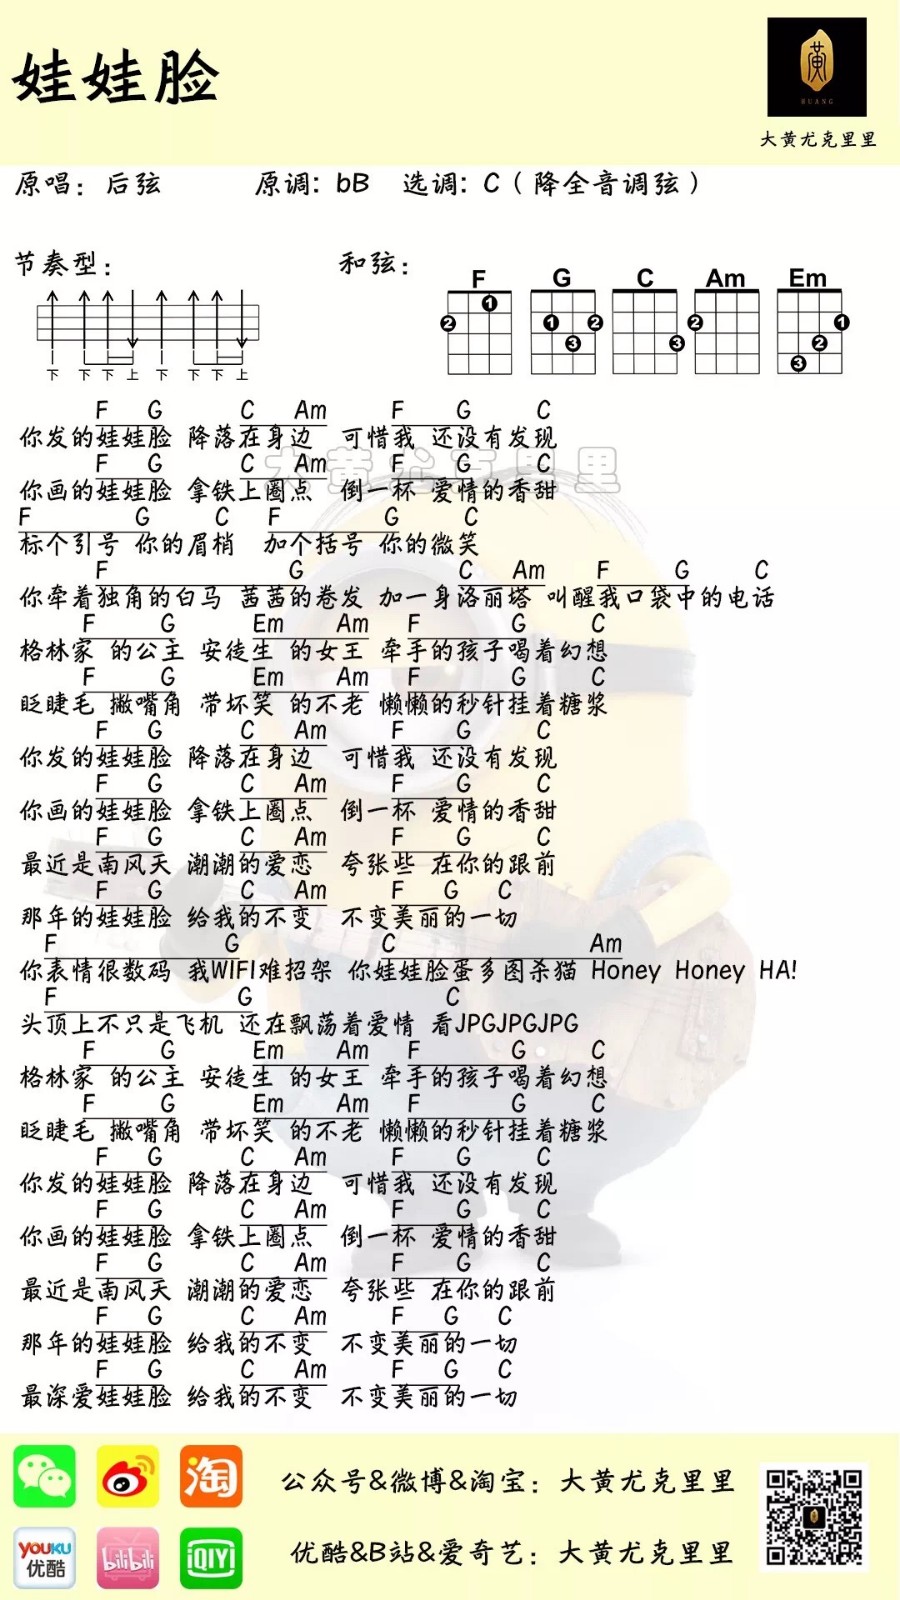 娃娃脸
黄
HUANG
大黄尤克里里
原唱：后弦 原调: bB 选调: C（降全音调弦）
节奏型： 和弦：
F G C Am Em
1 2
1 2 3
3
2
1 2 3
下 下 下 上 下 下 下 上
大黄尤克里里
F G C Am F G C
你发的娃娃脸 降落在身边 可惜我 还没有发现
F G C Am F G C
你画的娃娃脸 拿铁上圈点 倒一杯 爱情的香甜
F G C F G C
标个引号 你的眉梢 加个括号 你的微笑
F G C Am F G C
你牵着独角的白马 茜茜的卷发 加一身洛丽塔 叫醒我口袋中的电话
F G Em Am F G C
格林家 的公主 安徒生 的女王 牵手的孩子喝着幻想
F G Em Am F G C
眨睫毛 撇嘴角 带坏笑 的不老 懒懒的秒针挂着糖浆
F G C Am F G C
你发的娃娃脸 降落在身边 可惜我 还没有发现
F G C Am F G C
你画的娃娃脸 拿铁上圈点 倒一杯 爱情的香甜
F G C Am F G C
最近是南风天 潮潮的爱恋 夸张些 在你的跟前
F G C Am F G C
那年的娃娃脸 给我的不变 不变美丽的一切
F G C Am
你表情很数码 我WIFI难招架 你娃娃脸蛋多图杀猫 Honey Honey HA!
F G C
头顶上不只是飞机 还在飘荡着爱情 看JPGJPGJPG
F G Em Am F G C
格林家 的公主 安徒生 的女王 牵手的孩子喝着幻想
F G Em Am F G C
眨睫毛 撇嘴角 带坏笑 的不老 懒懒的秒针挂着糖浆
F G C Am F G C
你发的娃娃脸 降落在身边 可惜我 还没有发现
F G C Am F G C
你画的娃娃脸 拿铁上圈点 倒一杯 爱情的香甜
F G C Am F G C
最近是南风天 潮潮的爱恋 夸张些 在你的跟前
F G C Am F G C
那年的娃娃脸 给我的不变 不变美丽的一切
F G C Am F G C
最深爱娃娃脸 给我的不变 不变美丽的一切
淘
公众号&微博&淘宝：大黄尤克里里
YOUKU
优酷
bilibili
iQIYI
优酷&B站&爱奇艺：大黄尤克里里